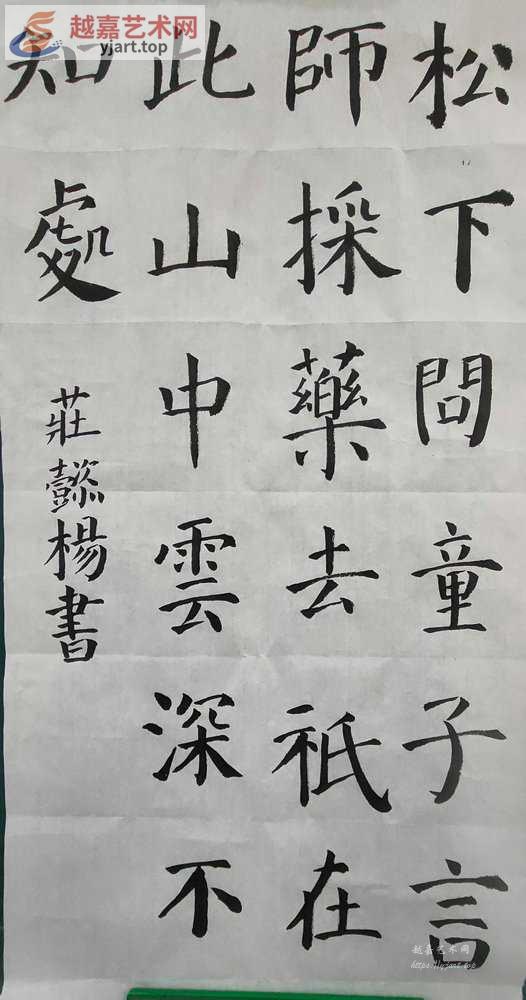 松下問童子言
師採藥去祇在
此山中雲深不
知處
莊懿楊書
越嘉艺术网
yjart.top
越嘉艺术网
https://yjart.top